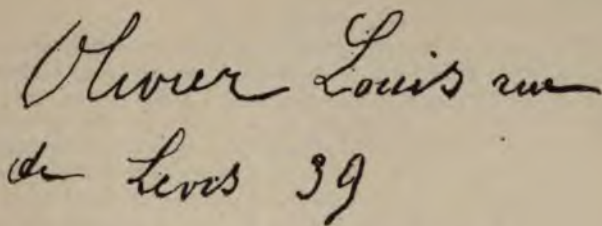 Olivier Louis rue
de Levis 39